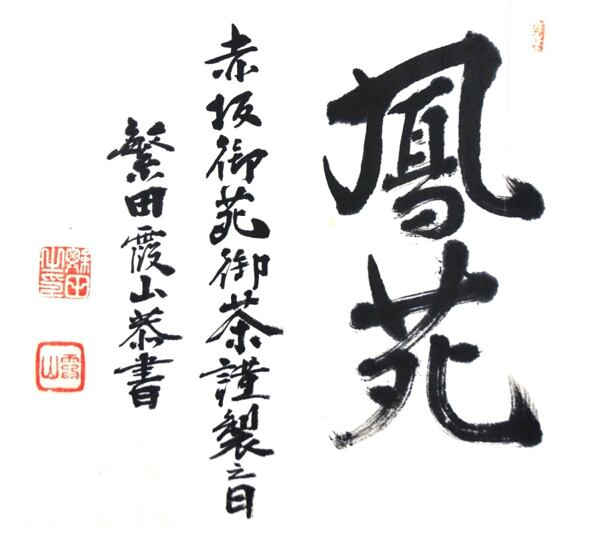 鳳苑
赤坂御苑御茶謹製之日
繁田霞山恭書
霞山